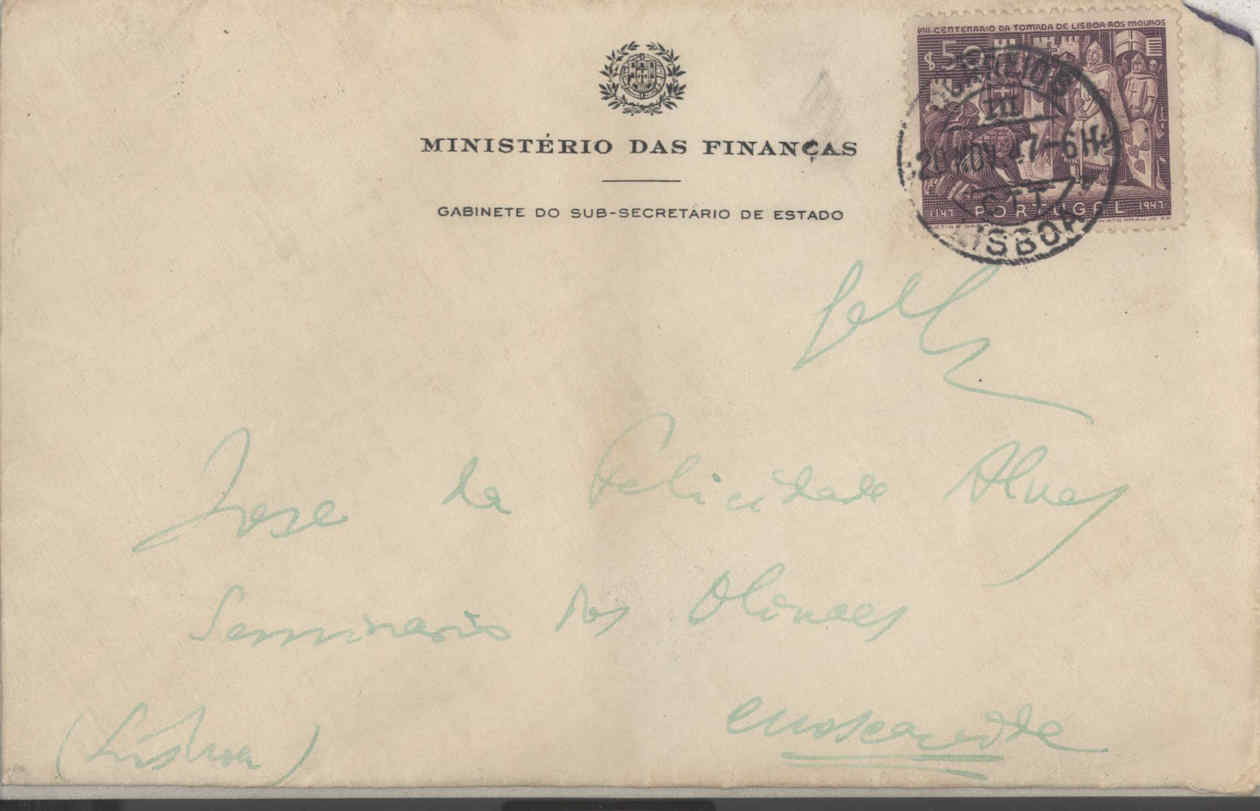 VIII CENTENARIO DA TOMADA DE LISBOA AOS MOUROS
$50
CORREIOS
20 NOV 47-6H
C.T.T.
1147 PORTUGAL 1947
LISBOA
MINISTÉRIO DAS FINANÇAS
GABINETE DO SUB-SECRETÁRIO DE ESTADO
Jose da Felicidade Alves
Seminario dos Olivaes
(Lisboa)